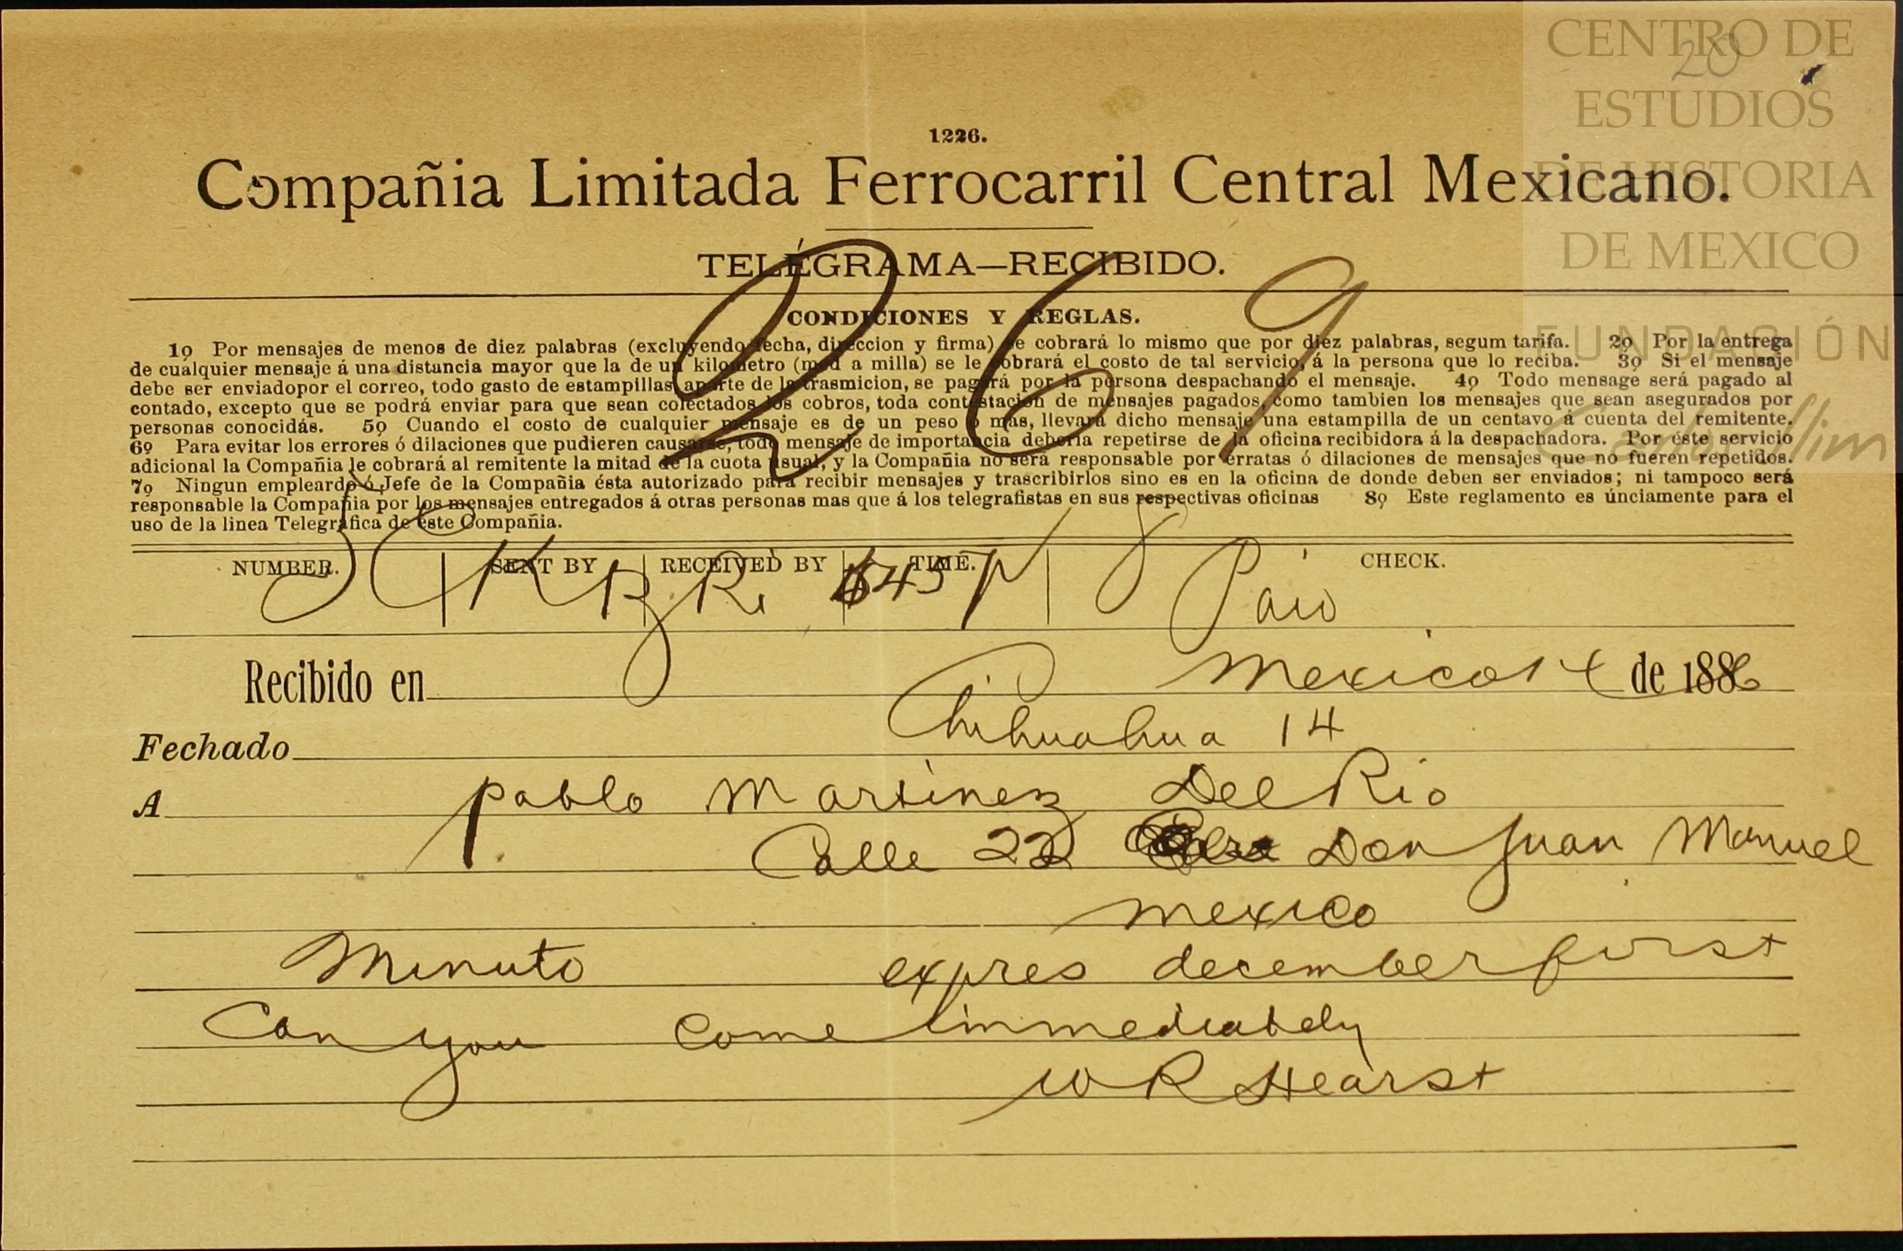 CENTRO DE
20
ESTUDIOS
DE HISTORIA
DE MEXICO
FUNDACIÓN
1226.
Compañia Limitada Ferrocarril Central Mexicano.
TELÉGRAMA—RECIBIDO.
269
CONDICIONES Y REGLAS.
1º Por mensajes de menos de diez palabras (excluyendo fecha, direccion y firma) se cobrará lo mismo que por diez palabras, segum tarifa. 2º Por la entrega
de cualquier mensaje á una distancia mayor que la de un kilometro (med a milla) se le cobrará el costo de tal servicio, á la persona que lo reciba. 3º Si el mensaje
debe ser enviadopor el correo, todo gasto de estampillas, aparte de la trasmicion, se pagará por la persona despachando el mensaje. 4º Todo mensage será pagado al
contado, excepto que se podrá enviar para que sean colectados los cobros, toda contestacion de mensajes pagados, como tambien los mensajes que sean asegurados por
personas conocidas. 5º Cuando el costo de cualquier mensaje es de un peso ó mas, llevará dicho mensaje una estampilla de un centavo á cuenta del remitente.
6º Para evitar los errores ó dilaciones que pudieren causarse, todo mensaje de importancia debería repetirse de la oficina recibidora á la despachadora. Por éste servicio
adicional la Compañia le cobrará al remitente la mitad de la cuota usual, y la Compañia no será responsable por erratas ó dilaciones de mensajes que no fueren repetidos.
7º Ningun empleardo ó Jefe de la Compañia ésta autorizado para recibir mensajes y trascribirlos sino es en la oficina de donde deben ser enviados; ni tampoco será
responsable la Compañia por los mensajes entregados á otras personas mas que á los telegrafistas en sus respectivas oficinas 8º Este reglamento es únciamente para el
uso de la linea Telegráfica de este Compañia.
NUMBER. SENT BY RECEIVED BY TIME. CHECK.
8 Paid
Recibido en Mexico 14 de 1886
Fechado Chihuahua 14
A Pablo Martinez Del Rio
Calle 22 Don Juan Manuel
Mexico
Minuto expres december first
Can you come immediately
W R Hearst